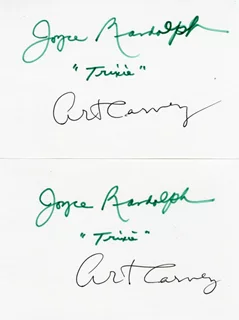 Joyce Randolph
"Trixie"
Art Carney
Joyce Randolph
"Trixie"
Art Carney